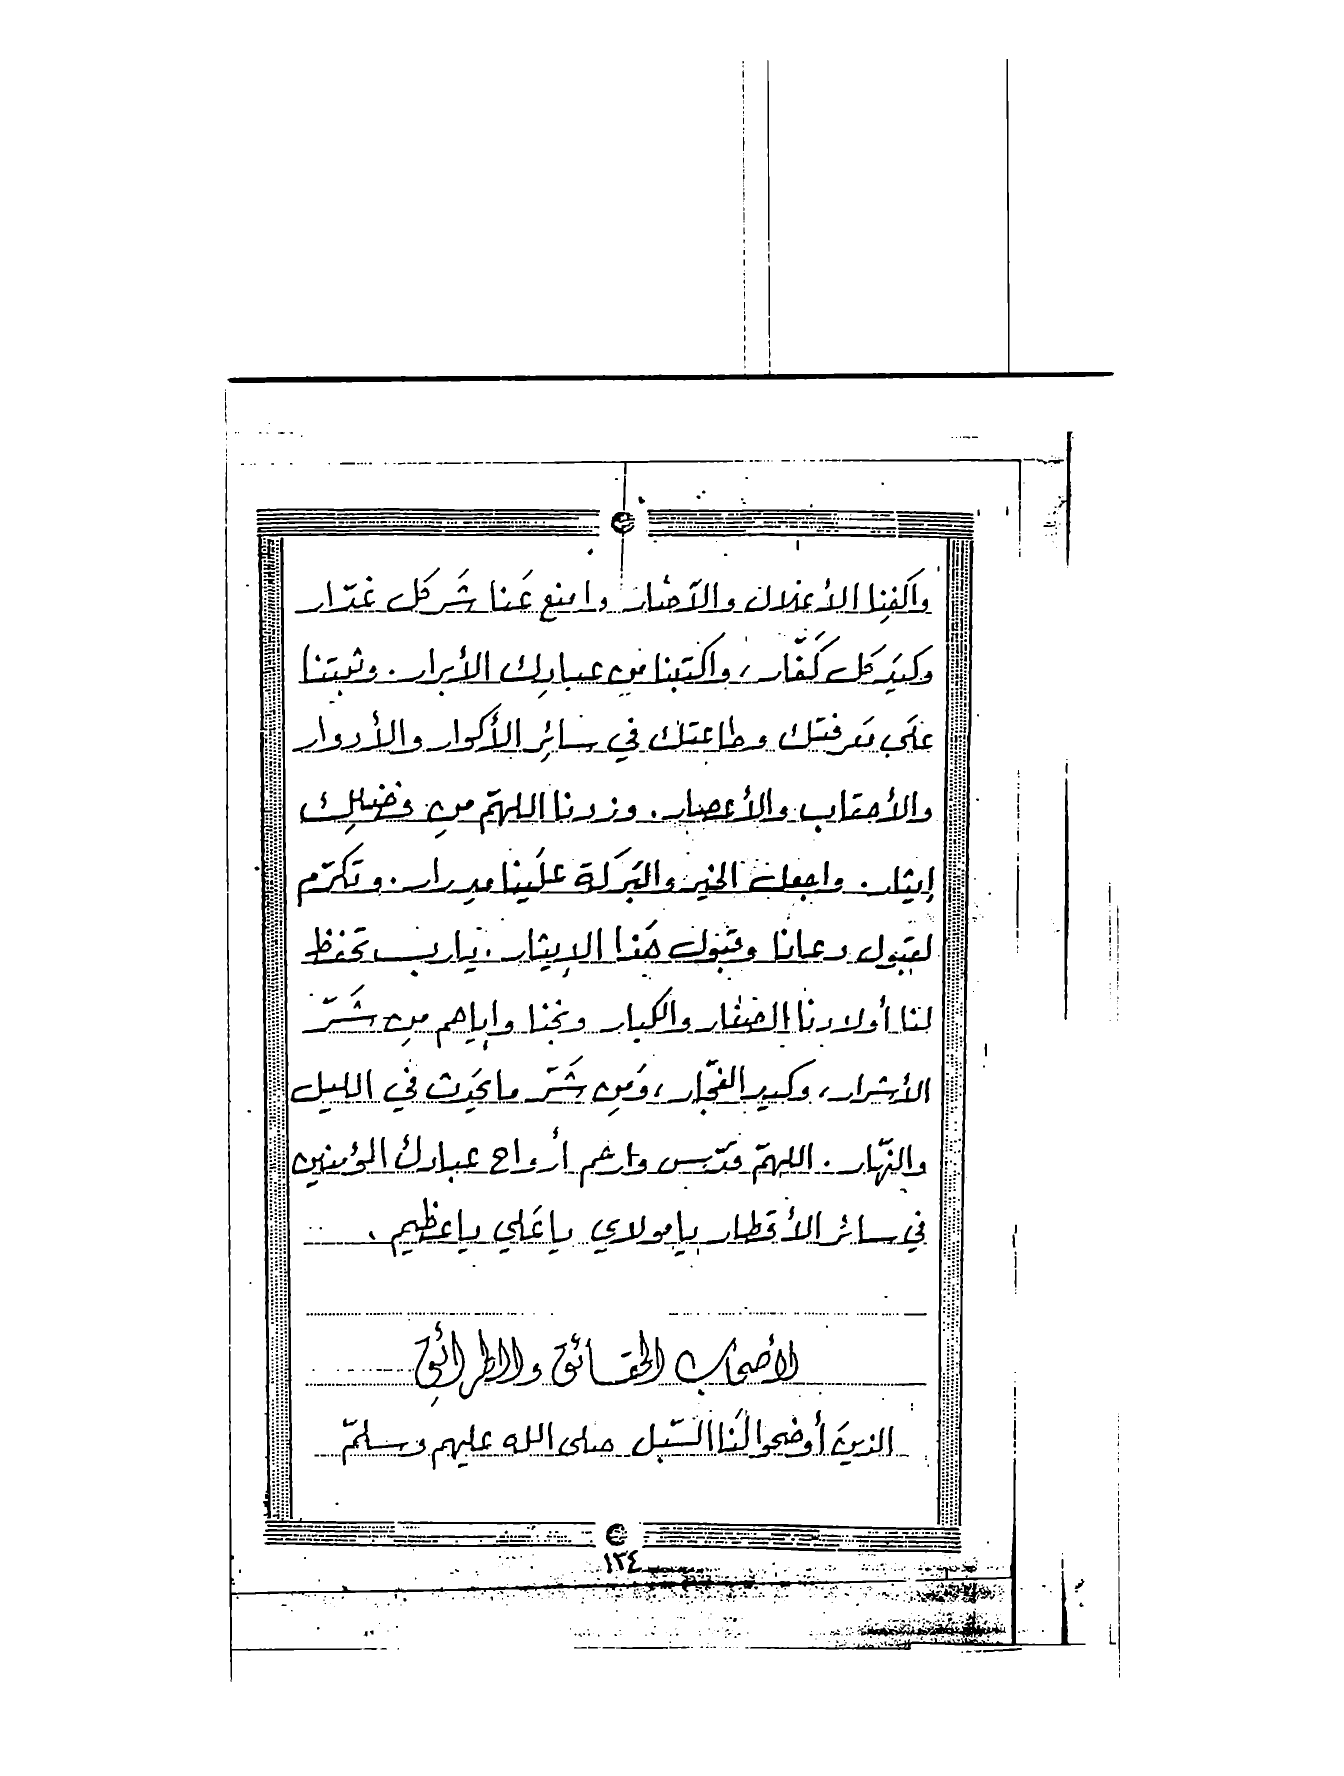 واكفِنا الأغلال والآصار وامنع عَنا شَر كل غدّار
وكيَد كل كَفّار، واكتبنا مِن عبادِك الأبرار. وثبتنا
علَى مَعرفتك وطاعتك في سائِر الأكوار والأدوار
والأحقاب والأعصار. وزدنا اللهمّ مِن فضلِك
إيثار. واجعل الخير والبَركة علَينا مِدرار. وتكرّم
لقبول دعانا وقبول هَذا الإيثار. يارب تحفظ
لنا أولادنا الصِغار والكبار ونجنا وإياهم مِن شَرّ
الأشرار، وكيد الفجّار، وَمِن شَرّ ما يَحدِث في الليل
والنّهار. اللهمّ قدّس وارحم أرواح عبادك المؤمنين
في سائر الأقطار يا مولاي يا عَلي يا عظيم.
لأصحاب الحقائق والطرائِق
الذينَ أوضحوا لَنا السّبل صلى الله عليهم وسلمّ
١٣٤